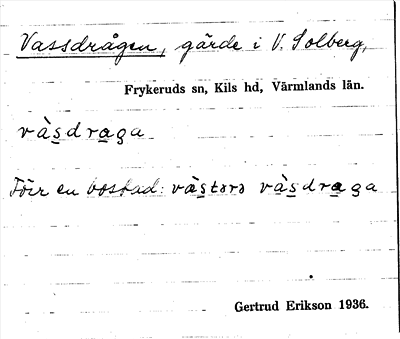 Vassdrågen, gärde i V. Solberg,
Frykeruds sn, Kils hd, Värmlands län.
và̀s̲dra̲ga
Förr en bostad: và̀s̲tərə và̀s̲dra̲ga
Gertrud Erikson 1936.